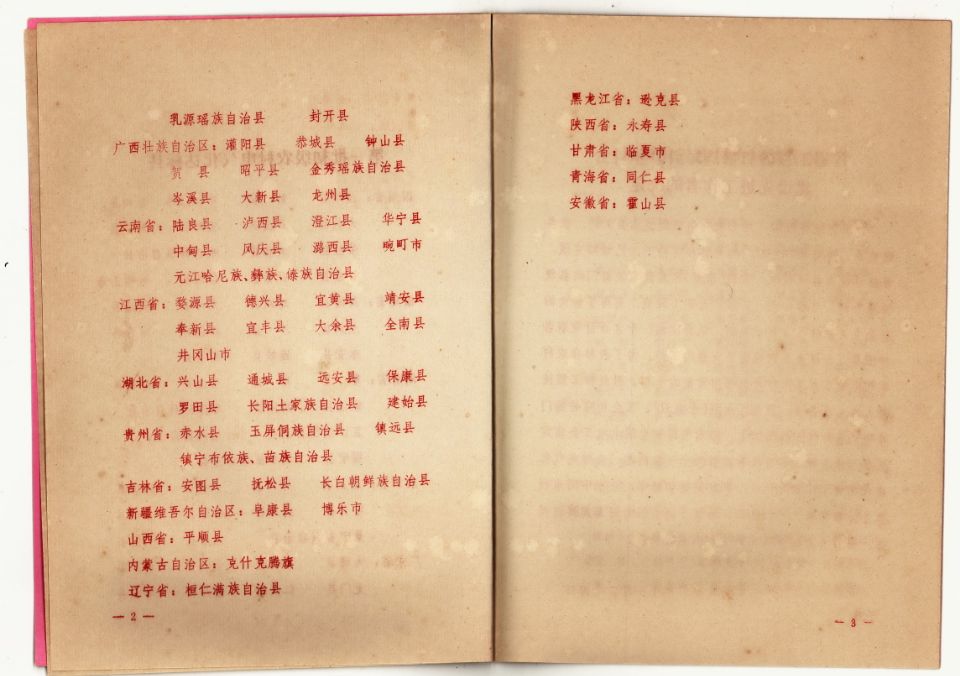 乳源瑶族自治县 封开县
广西壮族自治区：灌阳县 恭城县 钟山县
贺 县 昭平县 金秀瑶族自治县
岑溪县 大新县 龙州县
云南省：陆良县 泸西县 澄江县 华宁县
中甸县 凤庆县 潞西县 畹町市
元江哈尼族、彝族、傣族自治县
江西省：婺源县 德兴县 宜黄县 靖安县
奉新县 宜丰县 大余县 全南县
井冈山市
湖北省：兴山县 通城县 远安县 保康县
罗田县 长阳土家族自治县 建始县
贵州省：赤水县 玉屏侗族自治县 镇远县
镇宁布依族、苗族自治县
吉林省：安图县 抚松县 长白朝鲜族自治县
新疆维吾尔自治区：阜康县 博乐市
山西省：平顺县
内蒙古自治区：克什克腾旗
辽宁省：桓仁满族自治县
— 2 —
黑龙江省：逊克县
陕西省：永寿县
甘肃省：临夏市
青海省：同仁县
安徽省：霍山县
— 3 —